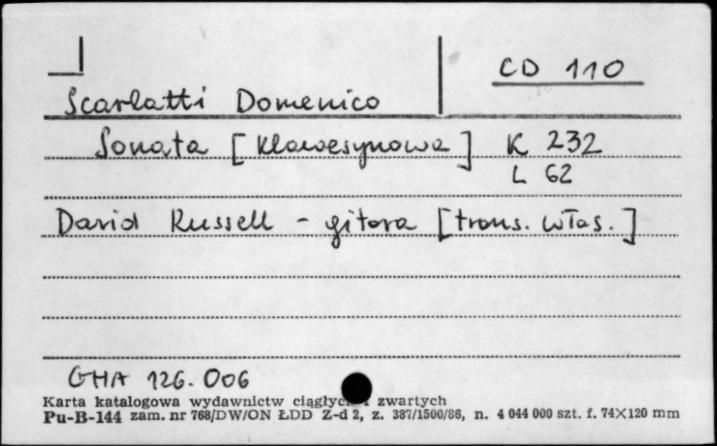 CD 110
Scarlatti Domenico
Sonata [klawesynowa] K 232
L 62
David Russell - gitara [trans. włas.]
GHA 126.006
Karta katalogowa wydawnictw ciągłych i zwartych
Pu-B-144 zam. nr 768/DW/ON ŁDD Z-d 2, z. 387/1500/86, n. 4 044 000 szt. f. 74×120 mm